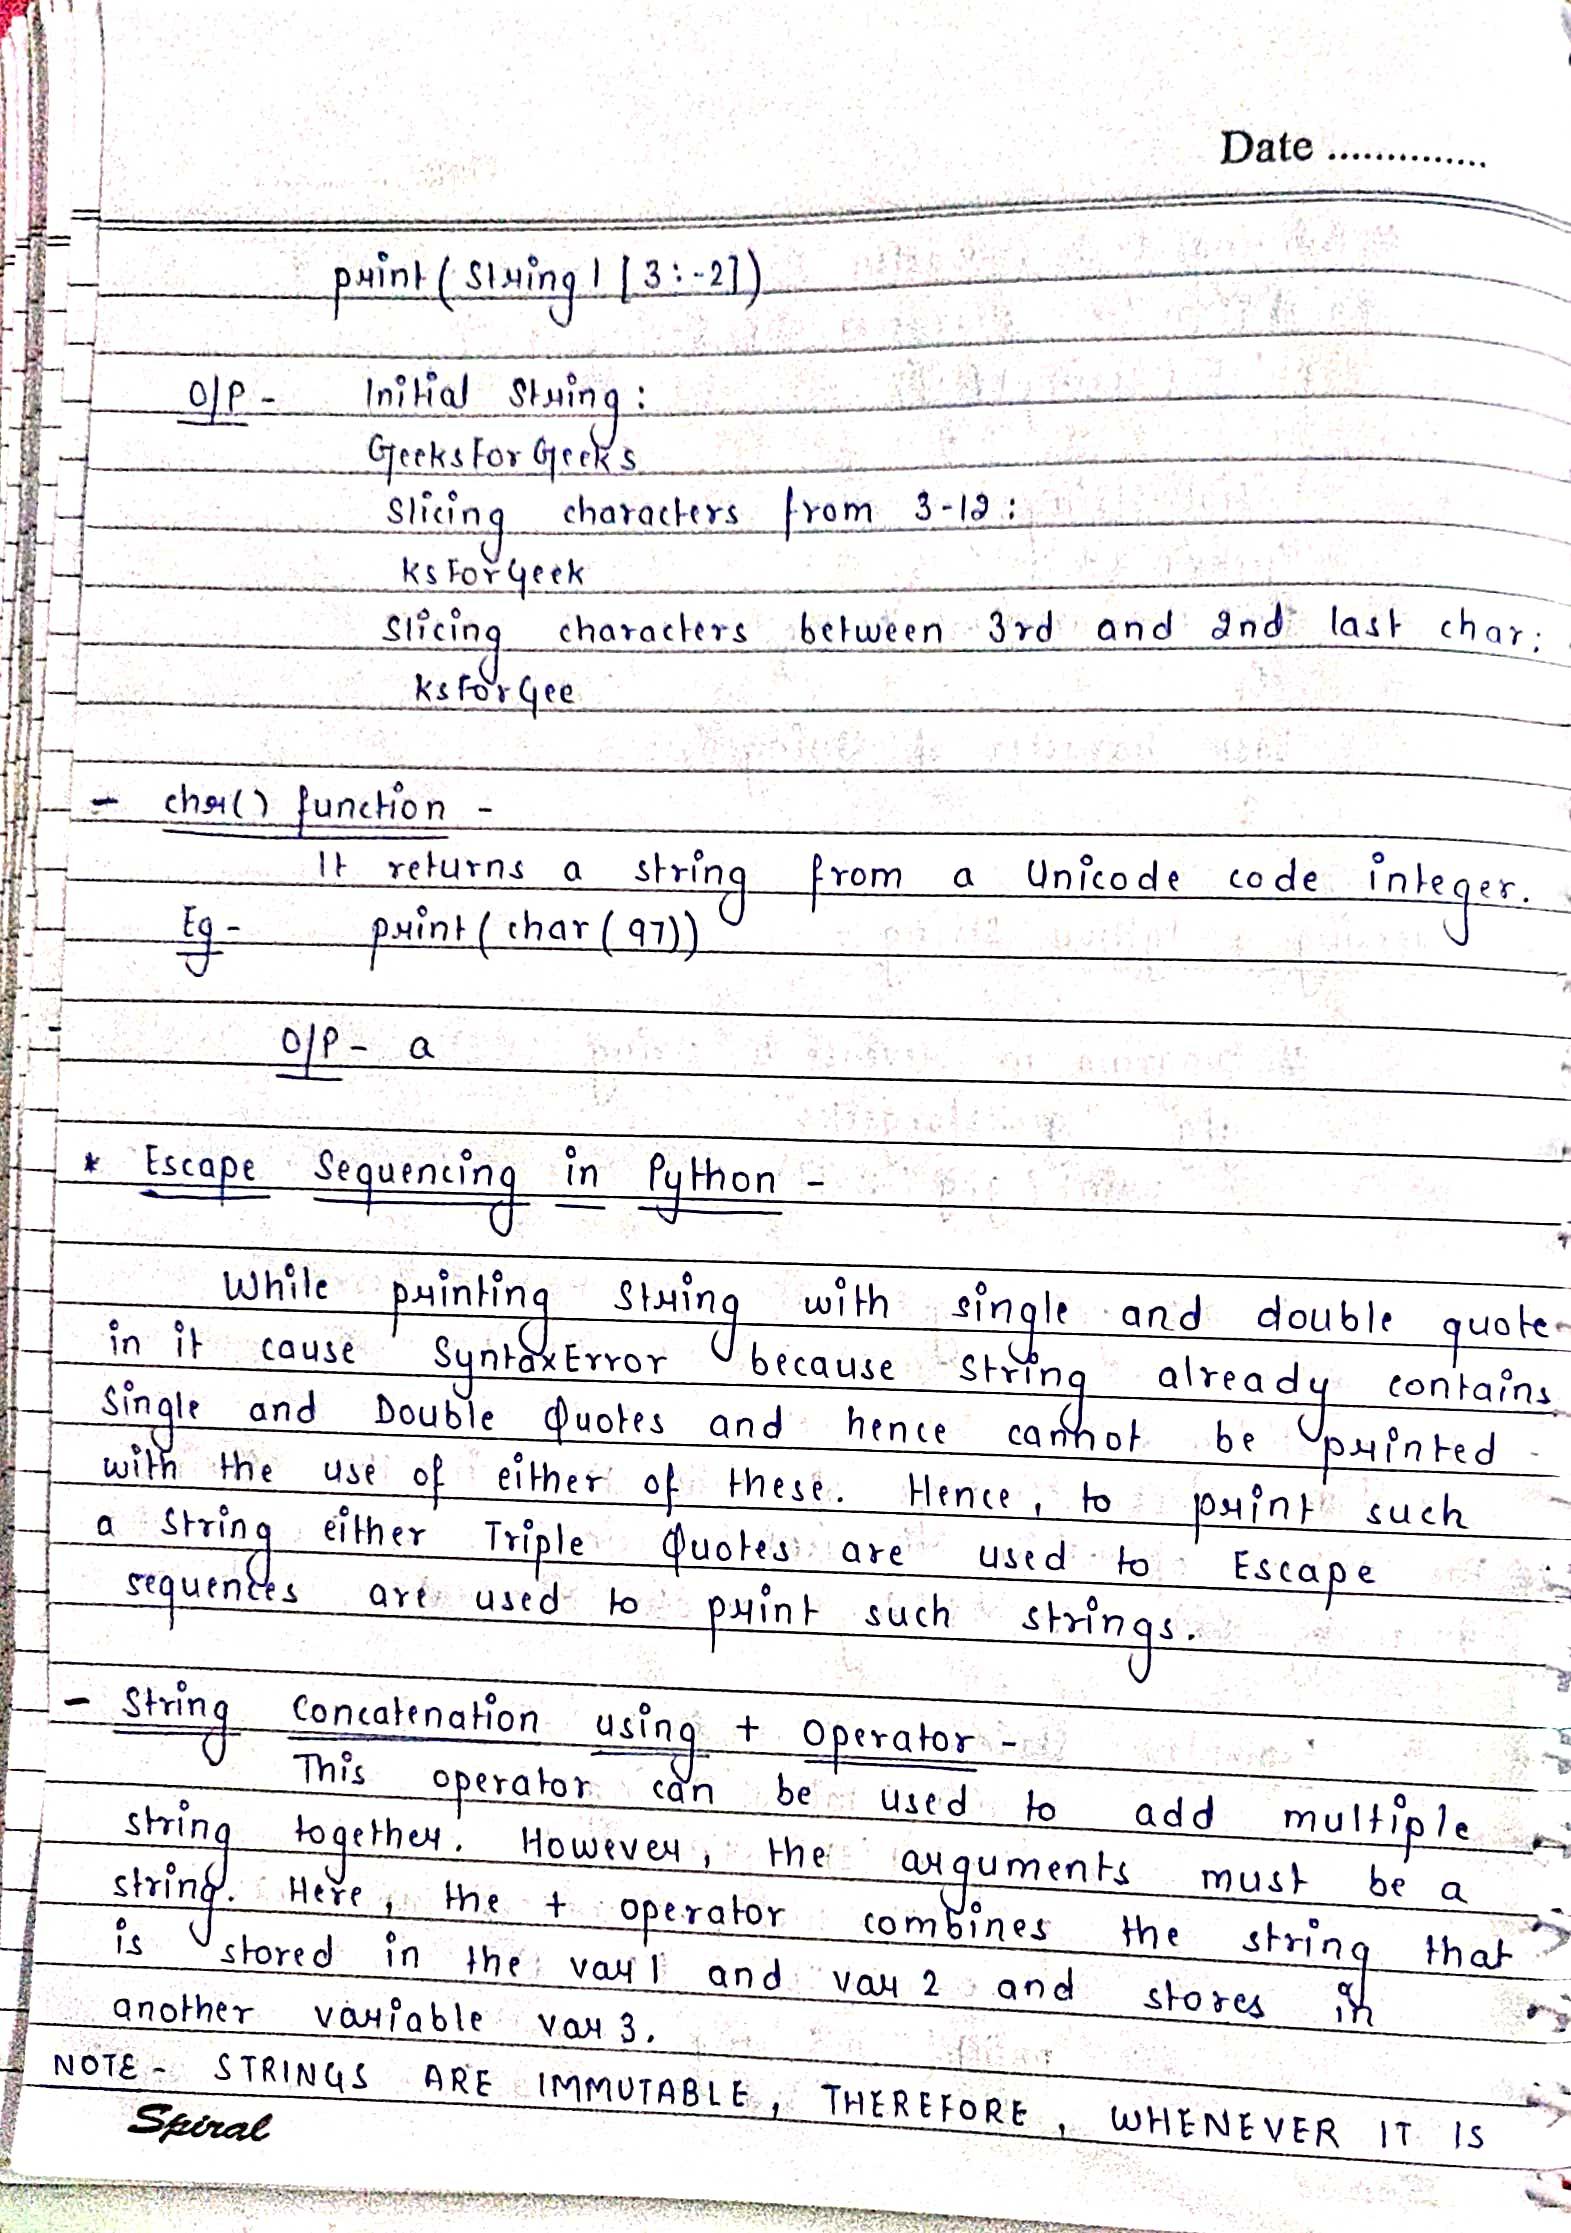 Date ..............
print( String1 [3:-2])
O/P - Initial String :
GeeksForGeeks
Slicing characters from 3-12 :
ksForGeek
Slicing characters between 3rd and 2nd last char:
ksForGee
- chr() function -
It returns a string from a Unicode code integer.
Eg - print( char(97))
O/P - a
* Escape Sequencing in Python -
While printing String with single and double quote
in it cause SyntaxError because string already contains
Single and Double Quotes and hence cannot be printed
with the use of either of these. Hence, to print such
a string either Triple Quotes are used to Escape
sequences are used to print such strings.
- String Concatenation using + Operator -
This operator can be used to add multiple
string together. However, the arguments must be a
string. Here, the + operator combines the string that
is stored in the var1 and var 2 and stores in
another variable var 3.
NOTE - STRINGS ARE IMMUTABLE, THEREFORE, WHENEVER IT IS
Spiral